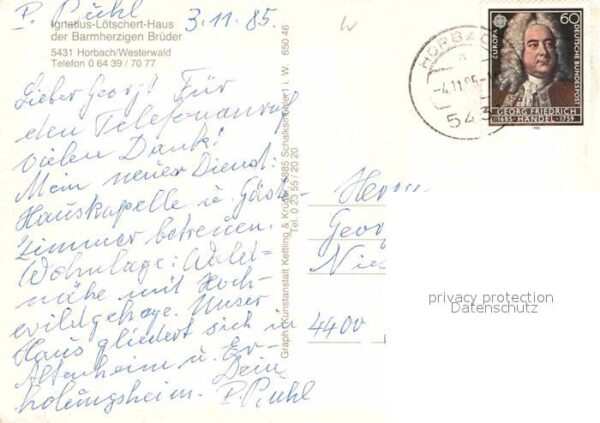 P. Pühl 3.11.85.
Ignatius-Lötschert-Haus
der Barmherzigen Brüder
5431 Horbach/Westerwald
Telefon 0 64 39 / 70 77
Lieber Georg! Für
den Telefonanruf
vielen Dank!
Mein neuer Dienst:
Hauskapelle u. Gäste-
zimmer betreuen.
Wohnlage: Wald-
nähe mit Hoch-
wildgehege. Unser
Haus gliedert sich in
Altenheim u. Er-
holungsheim. Dein
P. Pühl
Graph. Kunstanstalt Kettling & Krüger, 5885 Schalksmühle 1 i. W. 650 46
Tel. 0 23 55 / 20 20
HORBACH
-4.11.85
543
EUROPA
60
DEUTSCHE BUNDESPOST
GEORG FRIEDRICH
1685 HÄNDEL 1759
Herrn
Georg
4400
privacy protection
Datenschutz